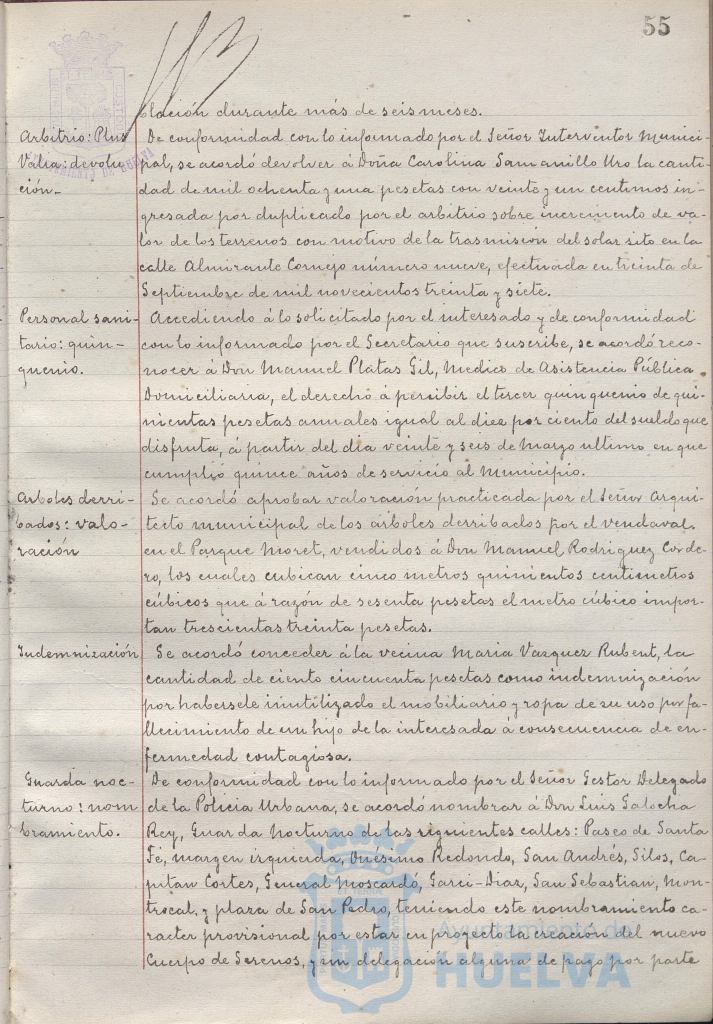 55
blación durante más de seis meses.
Arbitrio: Plus
Valia: devolu
ción.-
De conformidad con lo informado por el Señor Interventor Munici-
pal, se acordó devolver á Doña Carolina Samanillo Uro la canti-
dad de mil ochenta y una pesetas con veinte y un centimos in-
gresada por duplicado por el arbitrio sobre incremento de va-
lor de los terrenos con motivo de la trasmision del solar sito en la
calle Almirante Cornejo número nueve, efectuada en treinta de
Septiembre de mil novecientos treinta y siete.
Personal sani-
tario: quin-
quenio.
Accediendo á lo solicitado por el interesado y de conformidad
con lo informado por el Secretario que suscribe, se acordó reco-
nocer á Don Manuel Platas Gil, Medico de Asistencia Pública
Domiciliaria, el derecho á percibir el tercer quinquenio de qui-
nientas pesetas annales igual al diez por ciento del sueldo que
disfruta, á partir del dia veinte y seis de Marzo ultimo en que
cumplió quince años de servicio al Municipio.
Arboles derri-
bados: valo-
ración
Se acordó aprobar valoración practicada por el Señor Arqui-
tecto municipal de los árboles derribados por el vendaval
en el Parque Moret, vendidos á Don Manuel Rodriguez Corde-
ro, los cuales cubican cinco metros quinientos centimetros
cúbicos que á razón de sesenta pesetas el metro cúbico impor-
tan trescientas treinta pesetas.
Indemnización
Se acordó conceder á la vecina Maria Vazquez Rubent, la
cantidad de ciento cincuenta pesetas como indemnización
por habersele inutilizado el mobiliario y ropa de su uso por fa-
llecimiento de un hijo de la interesada á consecuencia de en-
fermedad contagiosa.
Guarda noc-
turno: nom
bramiento.
De conformidad con lo informado por el Señor Gestor Delegado
de la Policia Urbana, se acordó nombrar á Don Luis Galocha
Rey, Guarda Nocturno de las siguientes calles: Paseo de Santa
Fé, margen izquierda, Onésimo Redondo, San Andrés, Silos, Ca-
pitan Cortes, General Moscardó, Garci-Diaz, San Sebastian, Mon-
trocal, y plaza de San Pedro, teniendo este nombramiento ca-
racter provisional por estar en proyecto la creación del nuevo
Cuerpo de Serenos, y sin delegación alguna de pago por parte
Ayuntamiento de
HUELVA